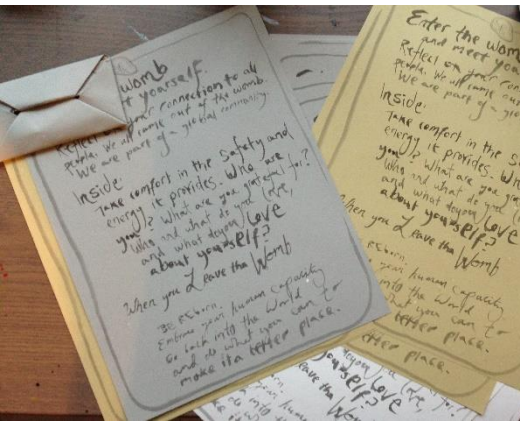 womb
t yourself.
your connection to all
people. We all came out of the womb.
We are part of a global community.
Inside:
Take comfort in the safety and
energy it provides. Who are
you? What are you grateful for?
Who and what do you love,
and what do you Love
about yourself?
When you Leave the Womb
BE REborn.
Embrace your human capacity
Go back into the World
and do what you can to
make it a better place.
Enter the wom
and meet you
Reflect on your con
people. We all came out
We are part of a glo
Inside:
Take comfort in the S
energy it provides.
you? What are you gr
Who and what do you
and what do you Love
about yourself?
When you Leave the Womb
REborn.
your human capacity
into the World
what you can to
better place.